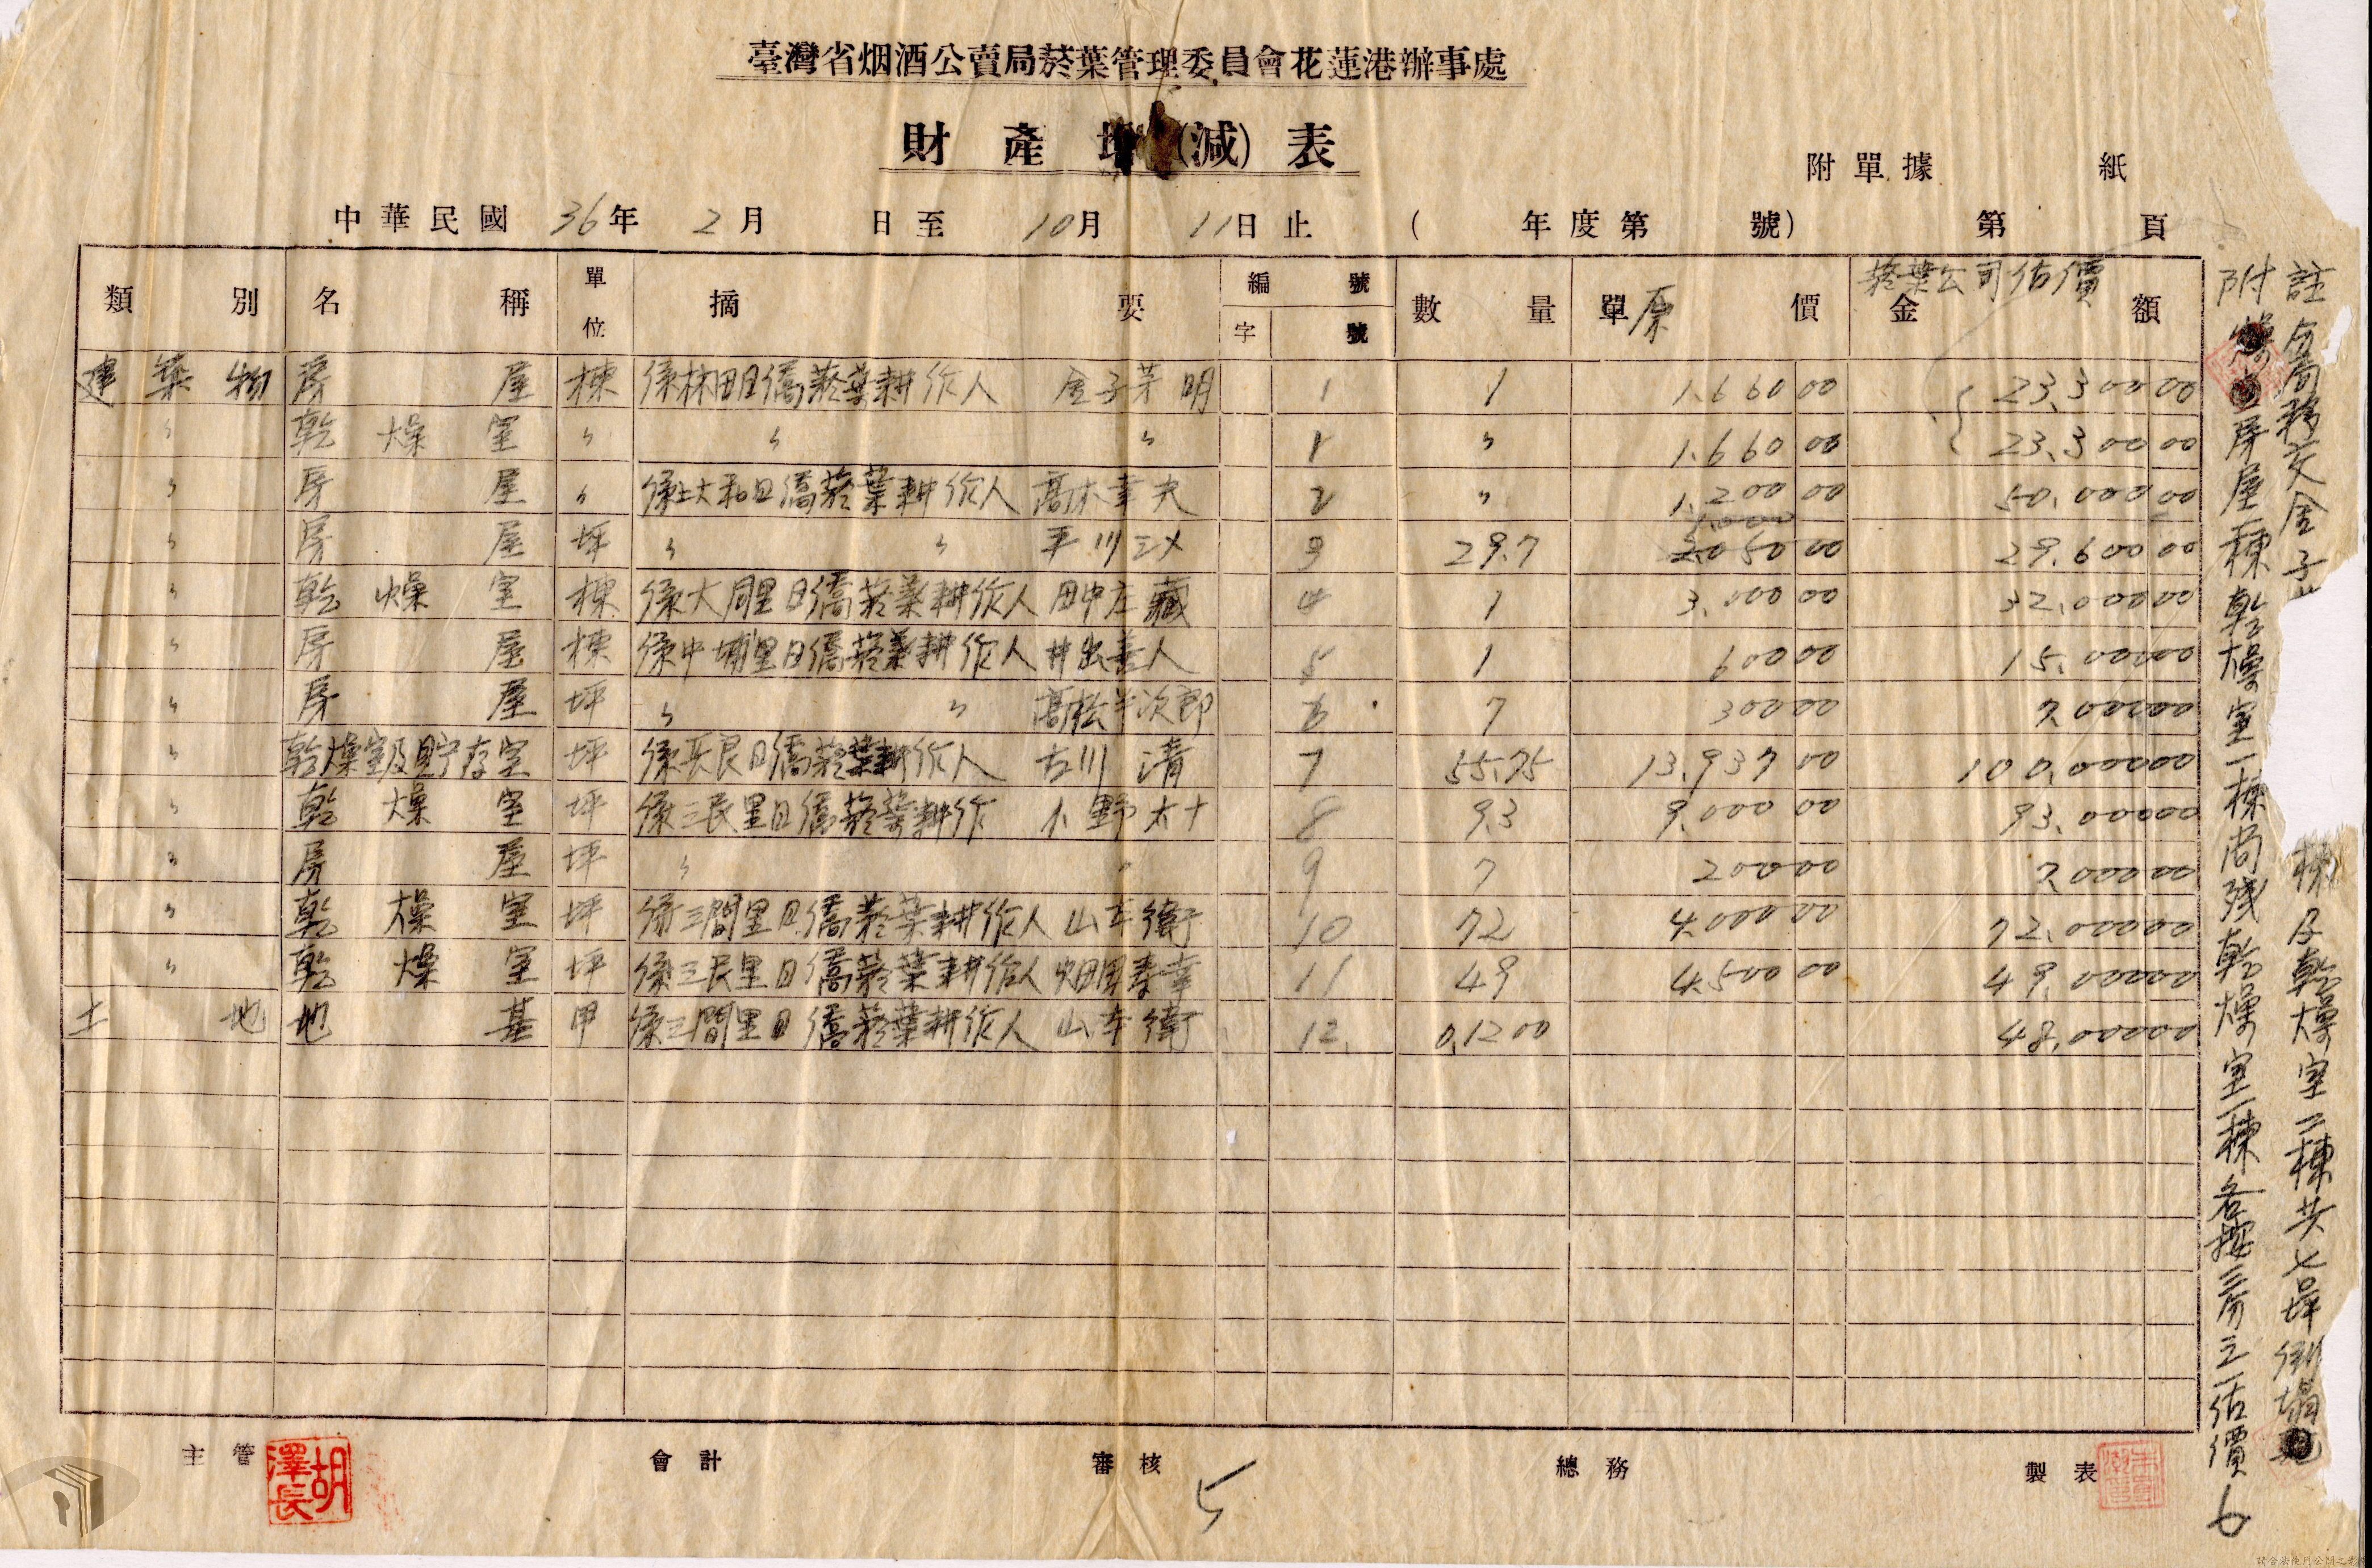 臺灣省烟酒公賣局菸葉管理委員會花蓮港辦事處
財產增(減)表
附單據 紙
中華民國 36年 2月 日至 10月 11日止 ( 年度第 號) 第 頁
類別 名稱 單位 摘要 編號 字 號 數量 單價 原 金額 菸葉公司估價
建築物 房屋 棟 係林田日僑菸葉耕作人 金子芳明 1 1 1.660 00 23,300 00
〃 乾燥室 〃 〃 〃 1 〃 1.660 00 23,300 00
〃 房屋 〃 係大和日僑菸葉耕作人 髙木幸夫 2 〃 1.200 00 50,000 00
〃 房屋 坪 〃 〃 平川 3 29.7 00 29.600 00
〃 乾燥室 棟 係大同里日僑菸葉耕作人 田中左藏 4 1 3.000 00 32,000 00
〃 房屋 棟 係中埔里日僑菸葉耕作人 井出善人 5 1 600 00 15,000 00
〃 房屋 坪 〃 〃 髙松半次郎 6 7 300 00 7,000 00
〃 乾燥室及貯存室 坪 係長良日僑菸葉耕作人 古川清 7 55.75 13,937 00 100,000 00
〃 乾燥室 坪 係三民里日僑菸葉耕作 小野太十 8 9.3 9,000 00 93,000 00
〃 房屋 坪 〃 〃 9 7 200 00 7,000 00
〃 乾燥室 坪 係三間里日僑菸葉耕作人 山本衛 10 72 4,000 00 72,000 00
〃 乾燥室 坪 係三民里日僑菸葉耕作人 11 49 4,500 00 49,000 00
土地 地基 甲 係三間里日僑菸葉耕作人 山本衛 12 0.1200 48,000 00
註 局移交金子
棟及乾燥室二棟共七坪倒塌
附 房屋一棟乾燥室一棟尚残乾燥室一棟各按三分之一估價
6
主管 會計 審核 總務 製表
胡澤長
5